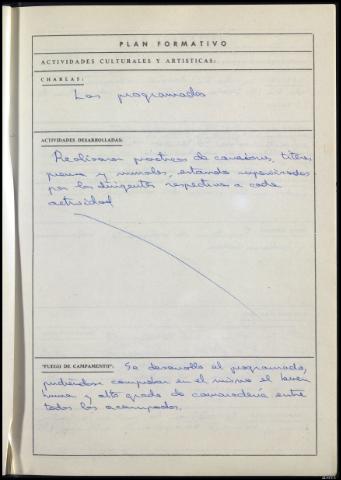 PLAN FORMATIVO
ACTIVIDADES CULTURALES Y ARTISTICAS:
CHARLAS:
Las programadas
ACTIVIDADES DESARROLLADAS:
Realizaron prácticas de canciones, títeres
prensa y murales, estando supervisados
por los dirigentes respectivos a cada
actividad
"FUEGO DE CAMPAMENTO": Se desarrolló el programado,
pudiéndose comprobar en el mismo el buen
humor y alto grado de camaradería entre
todos los acampados.